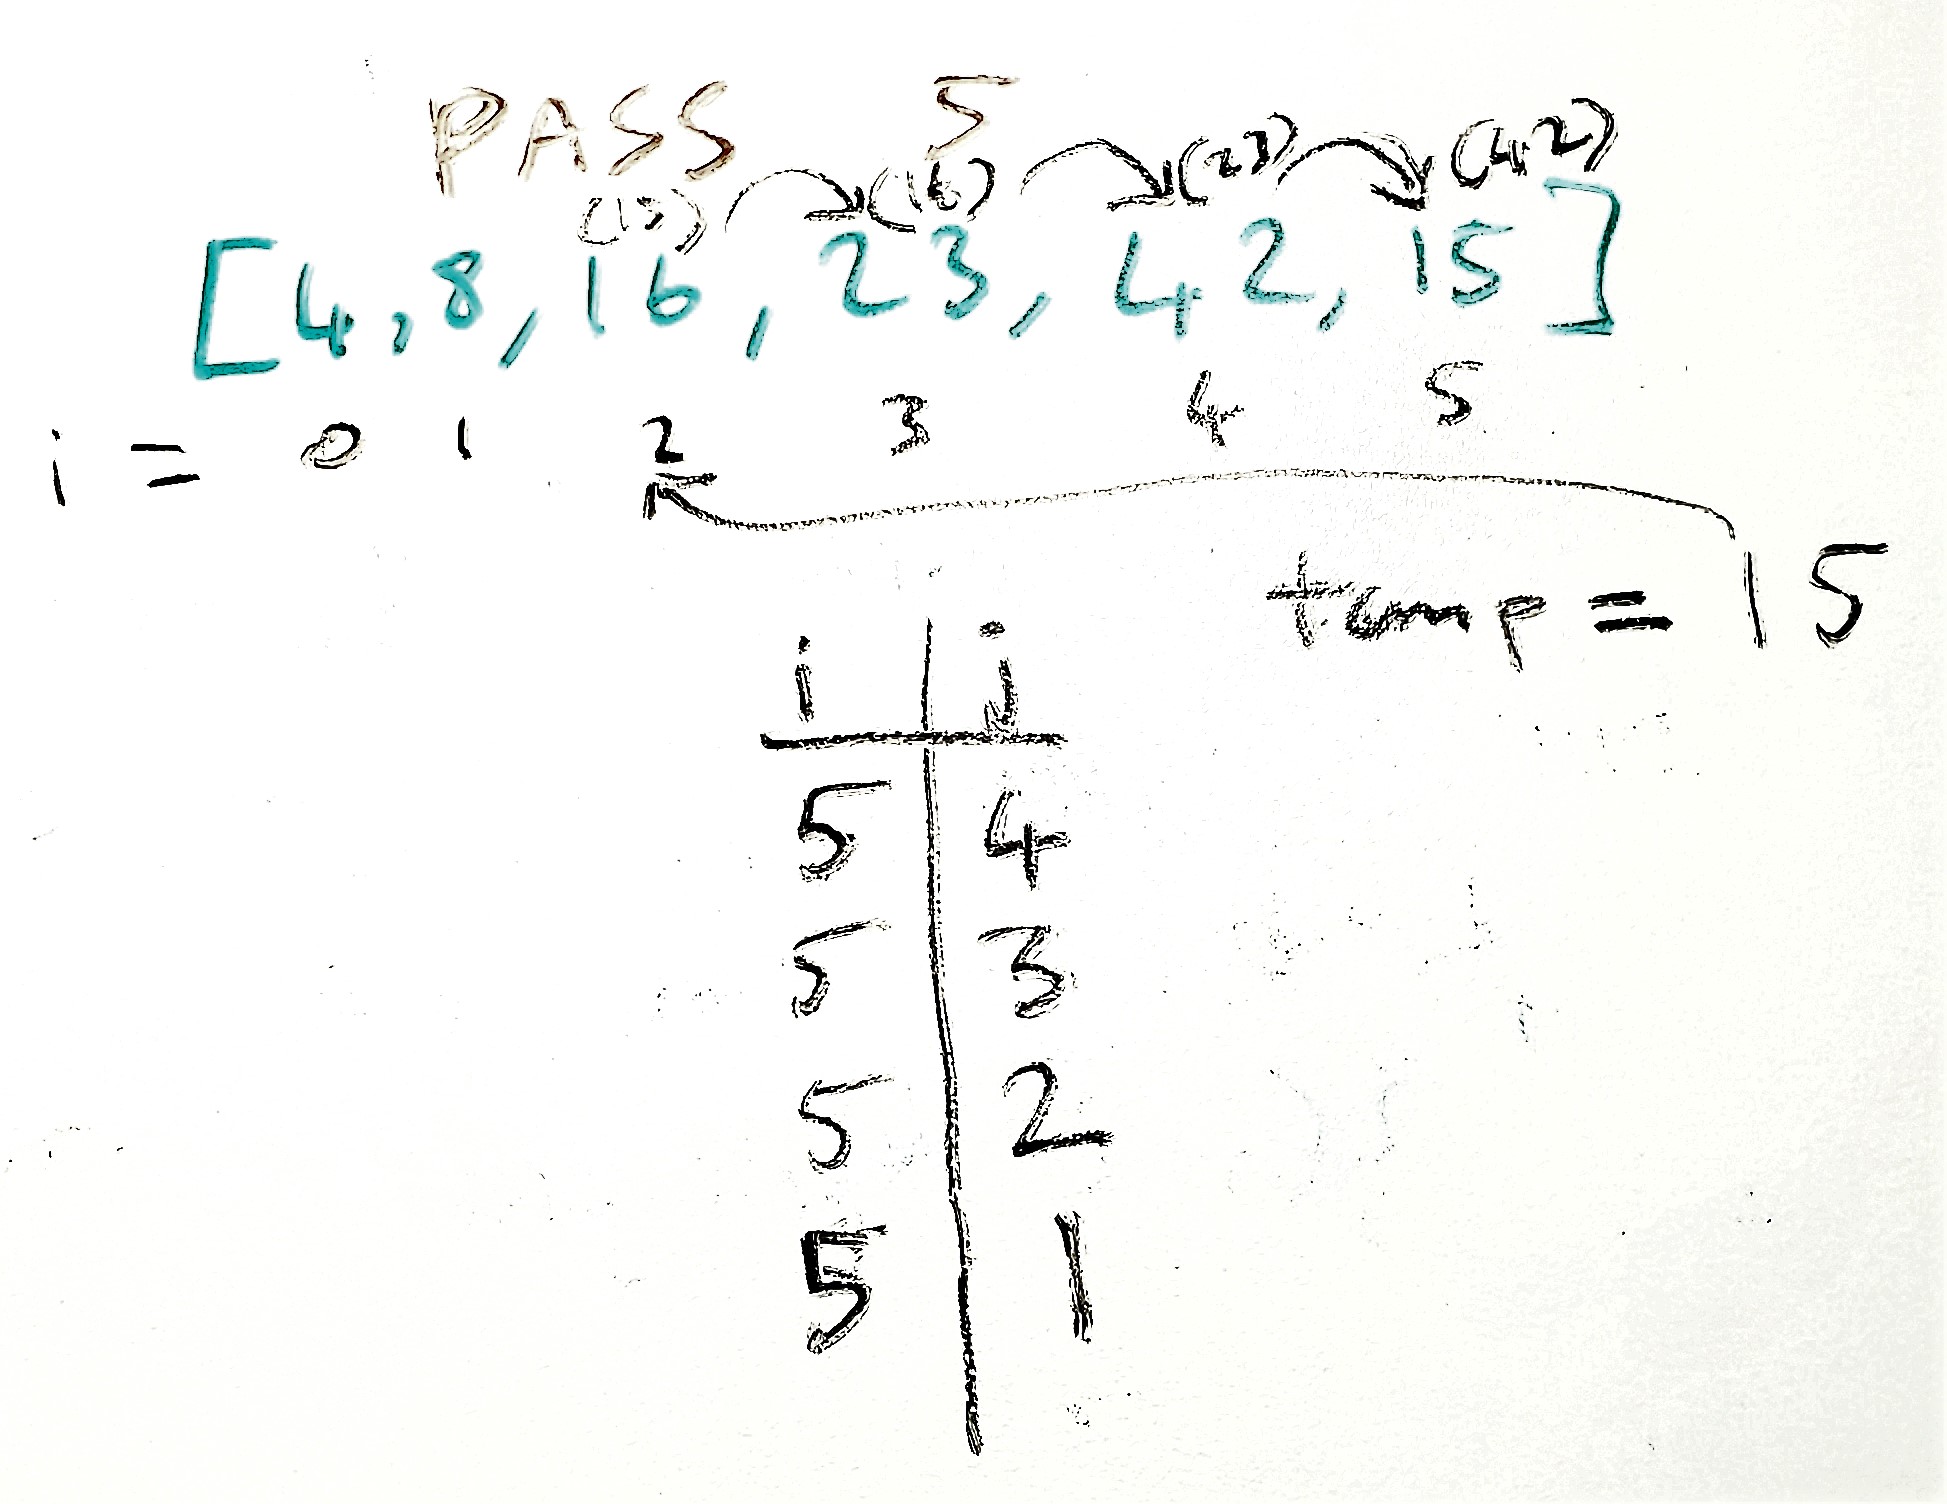 PASS 5
(15) (16) (23) (42)
[4,8,16,23,42,15]
i = 0 1 2 3 4 5
temp=15
i j
5 4
5 3
5 2
5 1